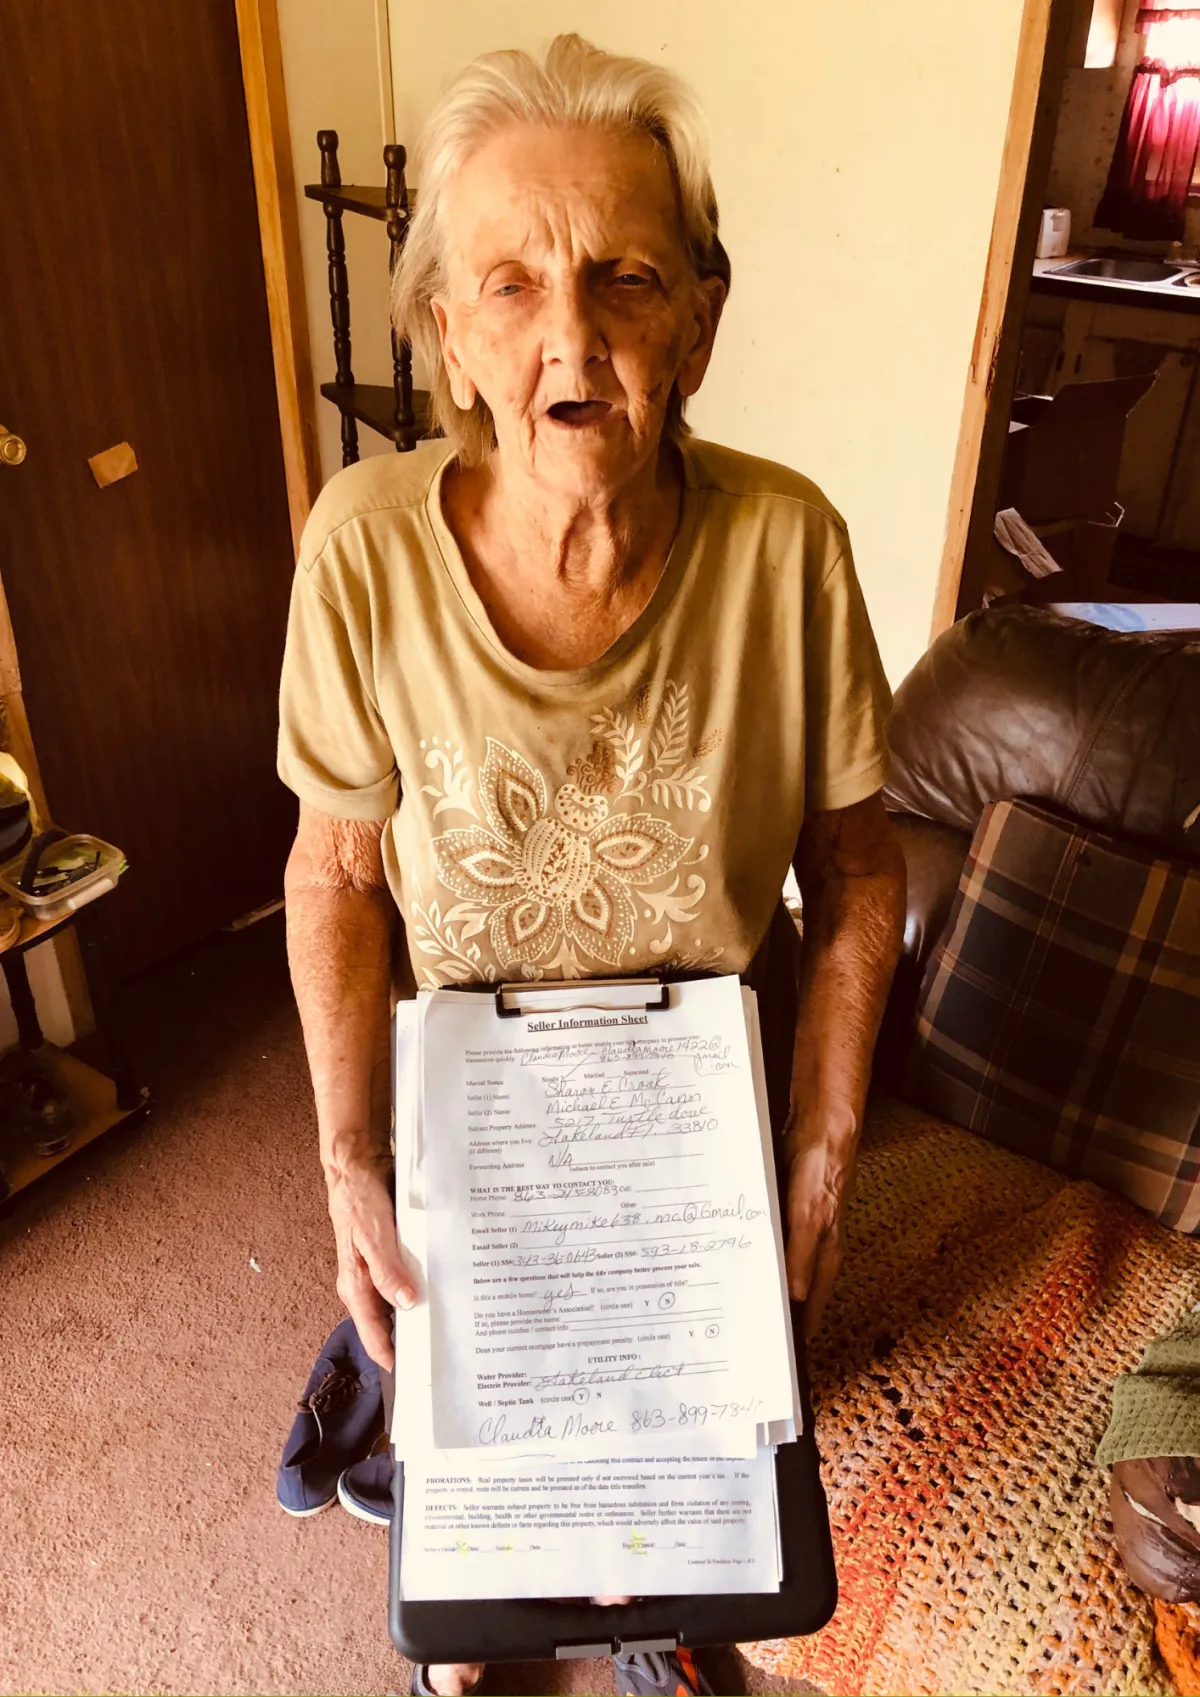 Seller Information Sheet
Please provide the following information to better enable
transactions quickly. Claudia Moore - Claudiamoore1422@
gmail
.com
Marital Status Single Married Separated
Seller (1) Name: Sharon E Croak
Seller (2) Name: Michael E McCann
Subject Property Address 5217 Turtle dove
Address where you live Lakeland Fl. 33810
(if different)
Forwarding Address N/A
(where to contact you after sale)
WHAT IS THE BEST WAY TO CONTACT YOU:
Home Phone: Cell:
Work Phone: Other:
Email Seller (1) Mikeymike638.mc@Gmail.com
Email Seller (2)
Seller (1) SS#: [redacted] Seller (2) SS#: [redacted]
Below are a few questions that will help the title company better process your sale.
Is this a mobile home? yes If so, are you in possession of title?
Do you have a Homeowner's Association? (circle one) Y N
If so, please provide the name:
And phone number / contact info
Does your current mortgage have a prepayment penalty (circle one) Y N
UTILITY INFO:
Water Provider:
Electric Provider: Lakeland elect
Well / Septic Tank (circle one) Y N
Claudia Moore 863-899-
this contract and accepting the
PRORATIONS: Real property taxes will be prorated only if not escrowed based on the current year's tax. If the
property is rented, rents will be current and be prorated as of the date title transfers.
DEFECTS: Seller warrants subject property to be free from hazardous substances and from violation of any zoning,
environmental, building, health or other governmental codes or ordinances. Seller further warrants that there are not
material or other known defects or facts regarding this property, which would adversely affect the value of said property.
Date Date Date